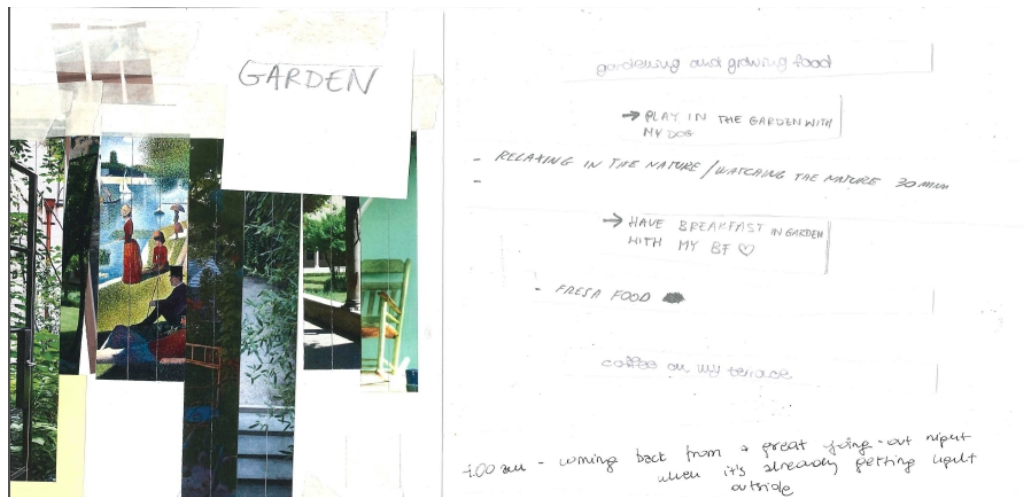 GARDEN
gardening and growing food
→ PLAY IN THE GARDEN WITH
MY DOG
- RELAXING IN THE NATURE / WATCHING THE NATURE 30 min
-
→ HAVE BREAKFAST IN GARDEN
WITH MY BF ♡
- FRESH FOOD
coffee on my terrace
.00 am - coming back from a great going-out night
when it's already getting light
outside